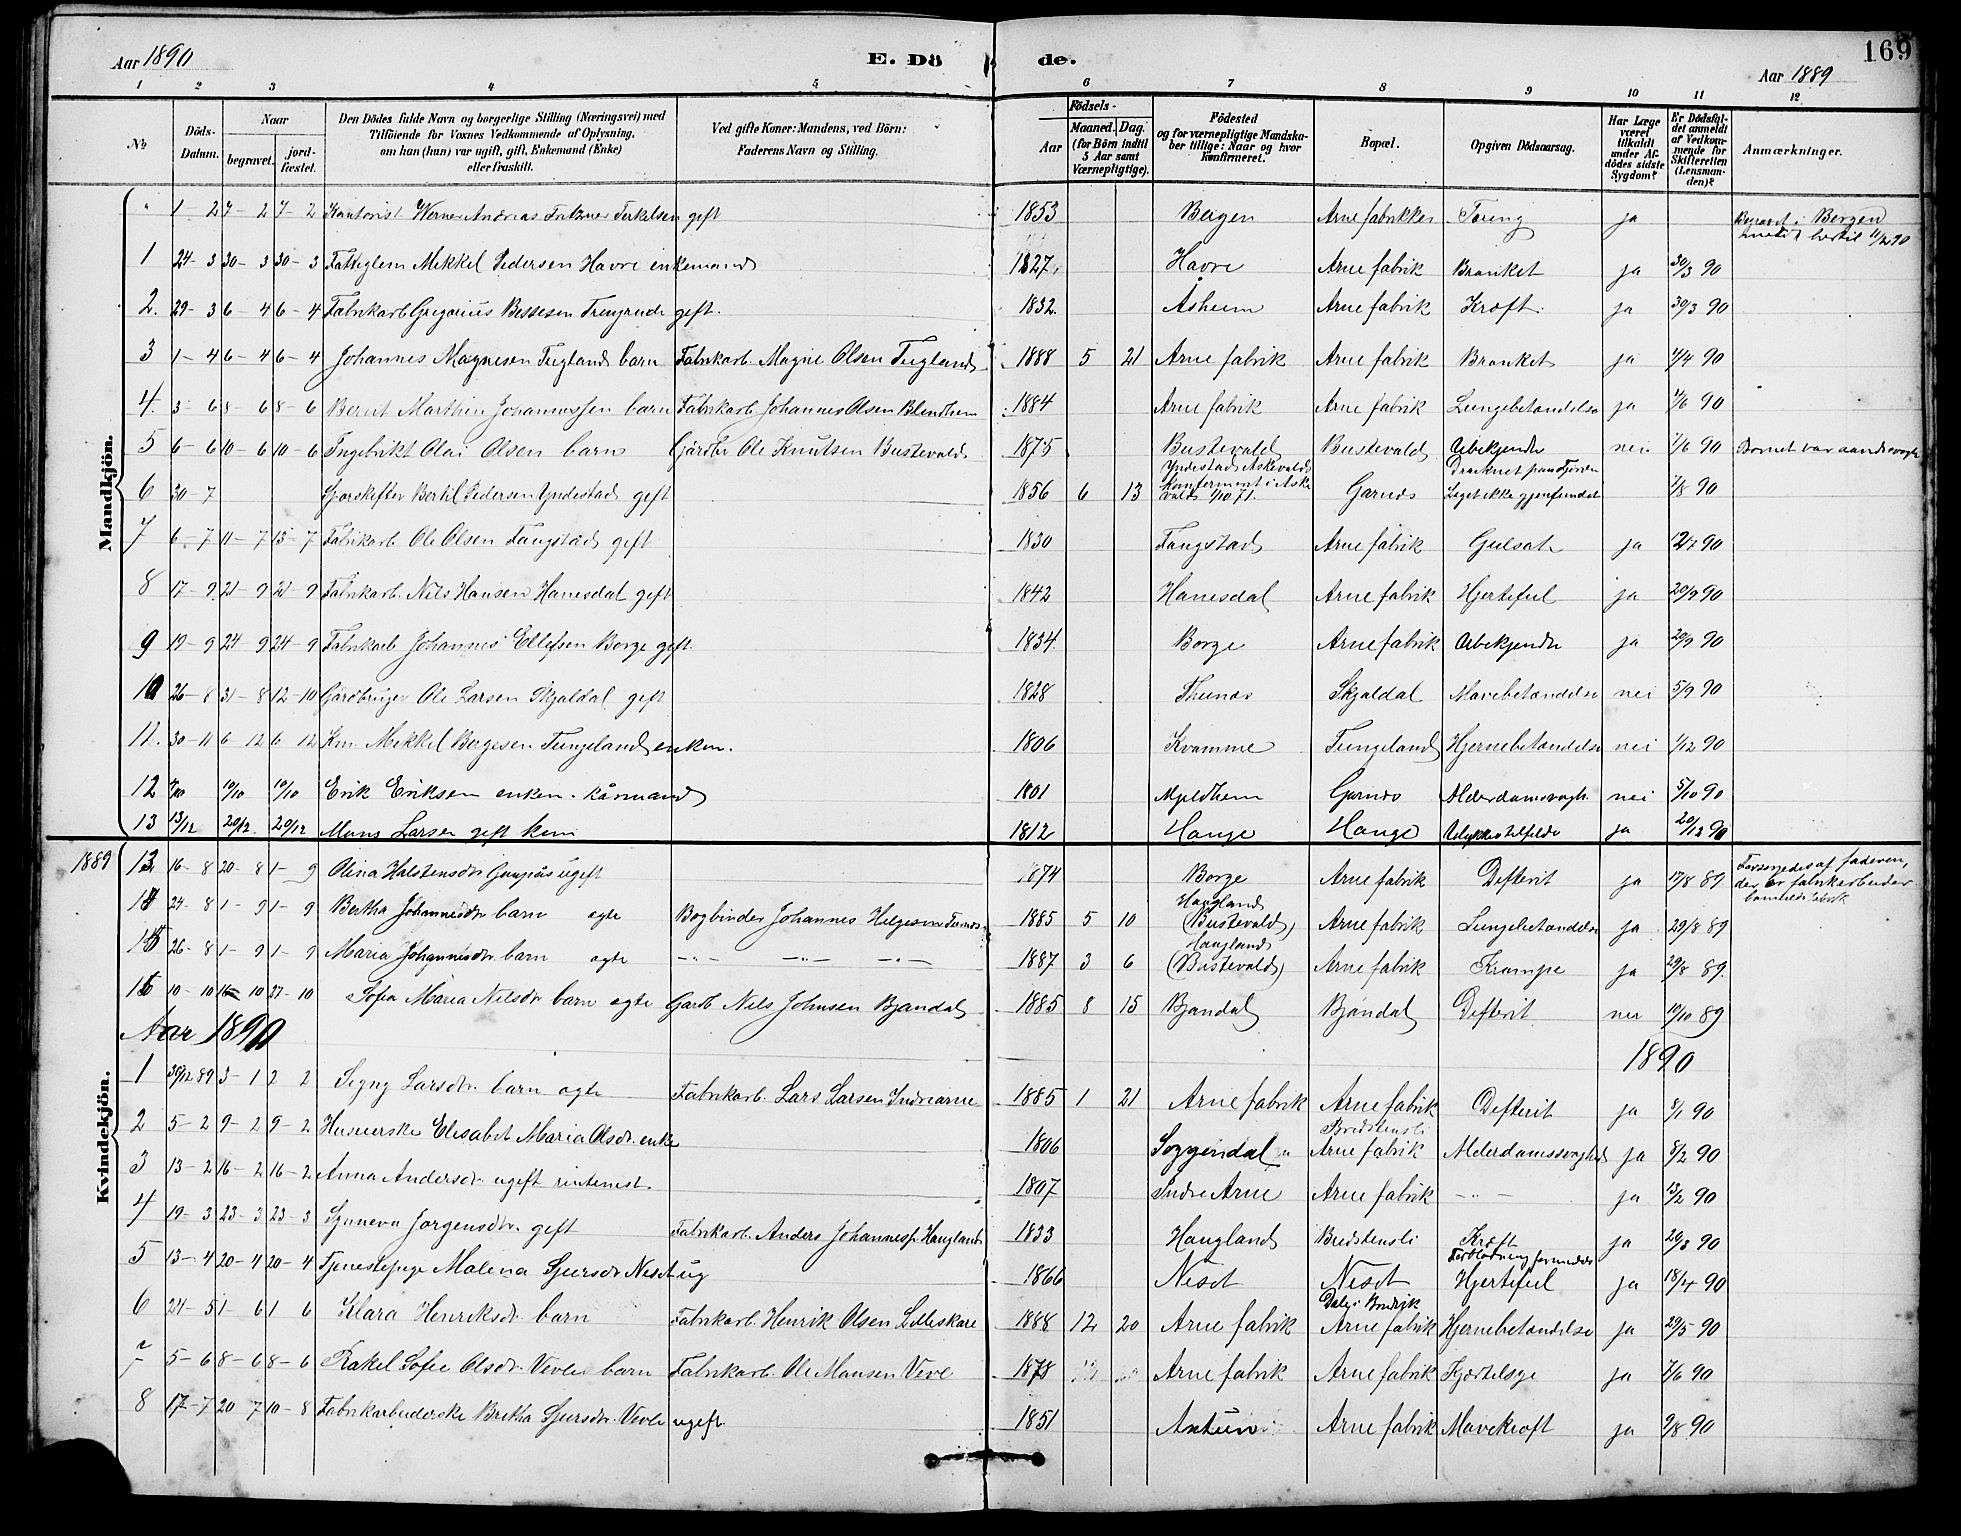 Aar 1890
E. Dö de.
169
Aar 1889
1 2 3 4 5 6 7 8 9 10 11 12
No
Döds-Datum.
Naar
begravet.
jordfæstet.
Den Dödes fulde Navn og borgerlige Stilling (Næringsvei) med Tilföiende for Voxnes Vedkommende af Oplysning, om han (hun) var ugift, gift, Enkemand (Enke) eller fraskilt.
Ved gifte Koner: Mandens, ved Börn: Faderens Navn og Stilling.
Födsels-
Aar
Maaned. Dag.
(for Börn indtil 5 Aar samt Værnepligtige).
Födested og for værnepligtige Mandskaber tillige: Naar og hvor konfirmeret.
Bopæl.
Opgiven Dödsaarsag.
Har Læge været tilkaldt under Afdödes sidste Sygdom?
Er Dödsfaldet anmeldt af Vedkommende for Skifteretten (Lensmanden)?
Anmærkninger.
Mandkjön.
" 1-2 7-2 7-2 Kontorist Werner Andreas Fritzner Terkelsen gift 1853 Bergen Arne fabrikker Tæring ja Begravet i Bergen meldt hertil 11/2 90
1 24-3 30-3 30-3 Fattiglem Mikkel Pedersen Havre enkemand 1827 Havre Arne fabrik Bronket ja 30/3 90
2. 29-3 6-4 6-4 Fabrikarb Gregorius Bessesen gift. 1832. Åsheim Arne fabrik Kræft. ja 30/3 90
3 1-4 6-4 6-4 Johannes Magnesen Tugland barn Fabrikarb. Magne Olsen Tugland 1888 5 21 Arne fabrik Arne fabrik Bronket ja 4/4 90
4. 3-6 8-6 8-6 Bernt Marthin Johannessen barn Fabrikarb Johannes Olsen Blindheim 1884 Arne fabrik Arne fabrik Lungebetændelse ja 7/6 90
5 6-6 10-6 10-6 Ingebrikt Olai Olsen barn Gårdbr Ole Knutsen Bustevald 1875 Bustevald Bustevald Ubekjendt nei 7/6 90 Barnet var aandssvagt
6 30-7 Bertil Pedersen Yndestad gift 1856 6 13 Yndestad Askevold Konfirmert i Askevold 1/10 71. Garnes Druknet paa Fjorden Liget ikke gjenfundet 7/8 90
7 6-7 11-7 13-7 Fabrikarb. Ole Olsen Fangstad gift 1830 Fangstad Arne fabrik Gulsot ja 12/7 90
8 17-9 21-9 21-9 Fabrikarb. Nils Hansen Hanesdal gift 1842 Hanesdal Arne fabrik Hjertefeil ja 20/9 90
9 19-9 24-9 24-9 Fabrikarb Johannes Ellefsen Borge gift. 1834. Borge Arne fabrik Ubekjendt ja 20/9 90
10 26-8 31-8 12-10 Gårdbruger Ole Larsen Skjaldal gift 1828 Thunes Skjaldal Mavebetændelse nei 5/9 90
11. 30-11 6-12 6 12 Km. Mikkel Bergesen Tungeland enkem. 1806 Kvamme Tungeland Hjernebetændelse nei 1/12 90
12 10/10 10/10 Erik Eriksen enkem. kårmand 1801 Mjeldhem Garnes Alderdomssvagh. nei 5/10 90
13 13/12 20/12. 20/12 Mons Larsen gift kem 1812 Hauge Hauge Ulykkestilfelde ja 20/12 90
Kvindekjön.
1889 13 16-8 20-8 1-9 Olina Halstensdr ugift 1874 Borge Arne fabrik Defterit ja 17/8 89 Forsørgedes af faderen, der er fabrikarbeider
14 24-8 1-9 1-9 Bertha Johannesdr barn ægte Bogbinder Johannes Helgesen 1885 5 10 Haugland (Bustevald) Arne fabrik Lungebetændelse ja 29/8 89
15 26-8 1-9 1-9 Maria Johannesdr. barn ægte -"- -"- -"- 1887 3 6 Haugland (Bustevald) Arne fabrik Krampe ja 29/8 89.
16 10-10 10 27-10 Sofia Maria Nilsdr barn ægte Gardb Nils Johnsen Bjøndal 1885 8 15 Bjøndal Bjøndal Defterit nei 10/10 89
Aar 1890
1890
1 30/12 89 3-1 2 2 Signy Larsdr. barn ægte Fabrikarb. Lars Larsen Indrearne 1885 1 21 Arne fabrik Arne fabrik Defterit ja 8/1 90
2 5-2 9-2 9-2 Elisabet Maria Olsdr. enke 1806 Soggendal Bredstensli Arne fabrik Alderdomssvaghed ja 8/2 90
3 13-2 16-2 16-2 Anna Andersdr. ugift 1807 Indre Arne Arne fabrik -"- ja 13/2 90
4 19-3 23-3 23-3 Synneva Jørgensdtr. gift Fabrikarb. Anders Johannesen Haugland 1833 Haugland Bredstensli Kræft ja 20/3 90
5 13-4 20-4 20-4 Tjenestepige Malena Sjursdr Neset ug 1866 Neset Neset Forblødning formedels Hjertefeil ja 18/4 90
6 24-5 1-6 1 6 Klara Henriksdr. barn Fabrikarb. Henrik Olsen Lilleskare 1888 12 20 Arne fabrik Arne fabrik Hjernebetændelse ja 29/5 90
7 5-6 8-6 8-6 Rakel Sofie Olsdr. Vevle barn Fabrikarb. Ole Monsen Vevle 1878 Arne fabrik Arne fabrik Kjertelsyge ja 7/6 90
8 17-7 20 7 10-8 Fabrikarbeiderske Bretha Sjursdr. Vevle ugift 1851 Arne fabrik Mavekræft ja 9/8 90